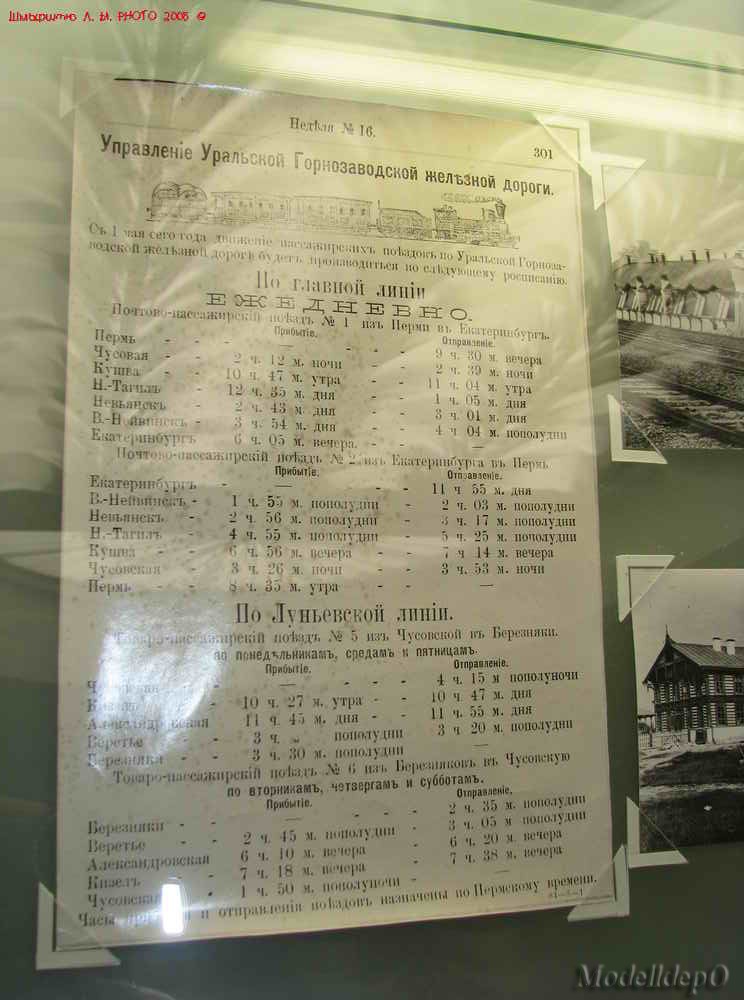 Шмыритно Л. М. PHOTO 2005 ©
Недѣля № 16.
301
Управленіе Уральской Горнозаводской желѣзной дороги.
Съ 1 мая сего года движеніе пассажирскихъ поѣздовъ по Уральской Горноза-
водской желѣзной дорогѣ будетъ производиться по слѣдующему росписанію.
По главной линіи
ЕЖЕДНЕВНО.
Почтово-пассажирскій поѣздъ № 1 изъ Перми въ Екатеринбургъ.
Прибытіе. Отправленіе.
Пермь - - — - - 9 ч. 30 м. вечера
Чусовая - 2 ч. 12 м. ночи - - 2 ч. 39 м. ночи
Кушва - - 10 ч. 47 м. утра - - 11 ч. 04 м. утра
Н.-Тагилъ - 12 ч. 35 м. дня - - 1 ч. 05 м. дня
Невьянскъ - 2 ч. 43 м. дня - - 3 ч. 01 м. дня
В.-Нейвинскъ - 3 ч. 54 м. дня - - 4 ч. 04 м. пополудни
Екатеринбургъ 6 ч. 05 м. вечера. - - —
Почтово-пассажирскій поѣздъ № 2 изъ Екатеринбурга въ Пермь
Прибытіе. Отправленіе.
Екатеринбургъ - — - - 11 ч 55 м. дня
В.-Нейвинскъ - 1 ч. 55 м. пополудни - 2 ч. 03 м. пополудни
Невьянскъ - 2 ч. 56 м. пополудни - 3 ч. 17 м. пополудни
Н.-Тагилъ - 4 ч. 55 м. пополудни - 5 ч. 25 м. пополудни
Кушва - - 6 ч. 56 м. вечера - - 7 ч 14 м. вечера
Чусовская - 3 ч. 26 м. ночи - - 3 ч. 53 м. ночи
Пермь - - 8 ч. 35 м. утра - - —
По Луньевской линіи.
Товаро-пассажирскій поѣздъ № 5 изъ Чусовской въ Березняки.
по понедѣльникамъ, средамъ и пятницамъ.
Прибытіе. Отправленіе.
— 4 ч. 15 м пополуночи
Кизелъ 10 ч. 27 м. утра - - 10 ч. 47 м. дня
Александровская 11 ч. 45 м. дня - - 11 ч. 55 м. дня
Веретье - 3 ч. „ пополудни 3 ч 20 м. пополудни
Березняки - 3 ч. 30 м. пополудни —
Товаро-пассажирскій поѣздъ № 6 изъ Березняковъ въ Чусовскую
по вторникамъ, четвергамъ и субботамъ.
Прибытіе. Отправленіе.
Березняки - - — - - 2 ч. 35 м. пополудни
Веретье - - 2 ч. 45 м. пополудни - 3 ч. 05 м. пополудни
Александровская 6 ч. 10 м. вечера - 6 ч. 20 м. вечера
Кизелъ - - 7 ч. 18 м. вечера - 7 ч. 38 м. вечера
Чусовская 1 ч. 50 м. пополуночи - —
Часы и отправленія поѣздовъ назначены по Пермскому времени.
ModelldepO